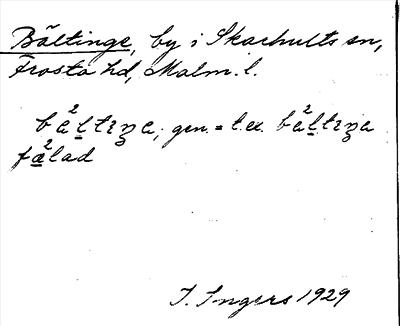 Bältinge, by i Skarhults sn,
Frosta hd, Malm. l.
bä²ltıŋa, gen. = t. ex. bä²ltıŋa
fä²lad
I. Ingers 1929